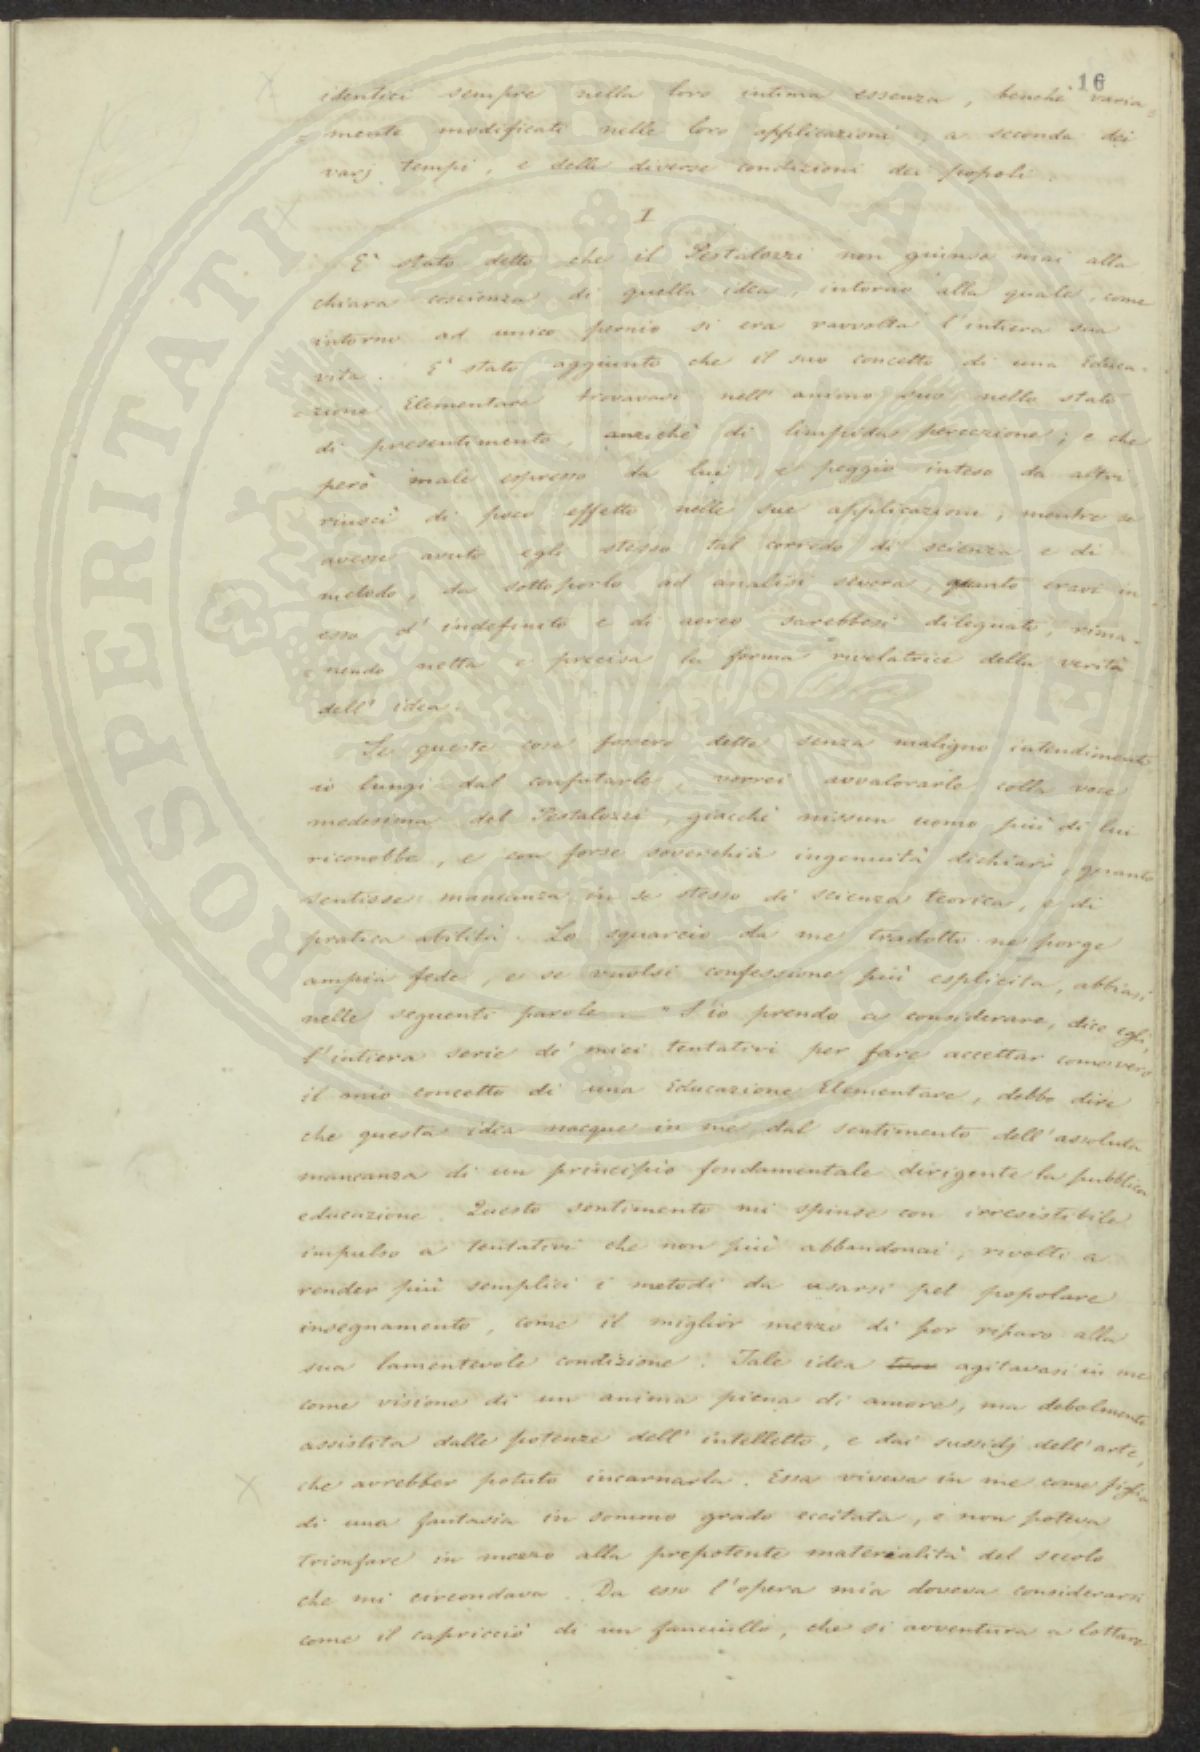 16
identici sempre nella loro intima essenza, benchè varia=
=mente modificati nelle loro applicazioni, a seconda dei
varj tempi, e delle diverse condizioni dei popoli.
I
E' stato detto che il Pestalozzi non giunse mai alla
chiara coscienza di quella idea, intorno alla quale, come
intorno ad unico pernio si era ravvolta l'intiera sua
vita. E' stato aggiunto che il suo concetto di una Educa=
=zione Elementare trovavasi nell'animo suo nello stato
di presentimento, anzichè di limpida percezione; e che
però male espresso da lui, e peggio inteso da altri
riuscì di poco effetto nelle sue applicazioni, mentre se
avesse avuto egli stesso tal corredo di scienza e di
metodo, da sottoporlo ad analisi severa, quanto eravi in
esso d'indefinito e di aereo sarebbesi dileguato, rima=
=nendo netta e precisa la forma rivelatrice della verità
dell'idea.
Se queste cose fossero dette senza maligno intendimento
io lungi dal confutarle, vorrei avvalorarle colla voce
medesima del Pestalozzi, giacchè nissun uomo più di lui
riconobbe, e con forse soverchia ingenuità dichiarò, quanto
sentisse mancanza in se stesso di scienza teorica, e di
pratica abilità. Lo squarcio da me tradotto ne porge
ampia fede, e se vuolsi confessione più esplicita, abbiasi
nelle seguenti parole. — "S'io prendo a considerare, dice egli,
l'intiera serie de' miei tentativi per fare accettar come vero
il mio concetto di una Educazione Elementare, debbo dire
che questa idea nacque in me dal sentimento dell'assoluta
mancanza di un principio fondamentale dirigente la pubblica
educazione. Questo sentimento mi spinse con irresistibile
impulso a tentativi che non più abbandonai, rivolti a
render più semplici i metodi da usarsi pel popolare
insegnamento, come il miglior mezzo di por riparo alla
sua lamentevole condizione. Tale idea agitavasi in me
come visione di un anima piena di amore, ma debolmente
assistita dalle potenze dell'intelletto, e dai sussidj dell'arte,
che avrebber potuto incarnarla. Essa viveva in me come figlia
di una fantasia in sommo grado eccitata, e non poteva
trionfare in mezzo alla prepotente materialità del secolo
che mi circondava. Da esso l'opera mia doveva considerarsi
come il capriccio di un fanciullo, che si avventura a lottare
PROSPERITATI PUBLICAE